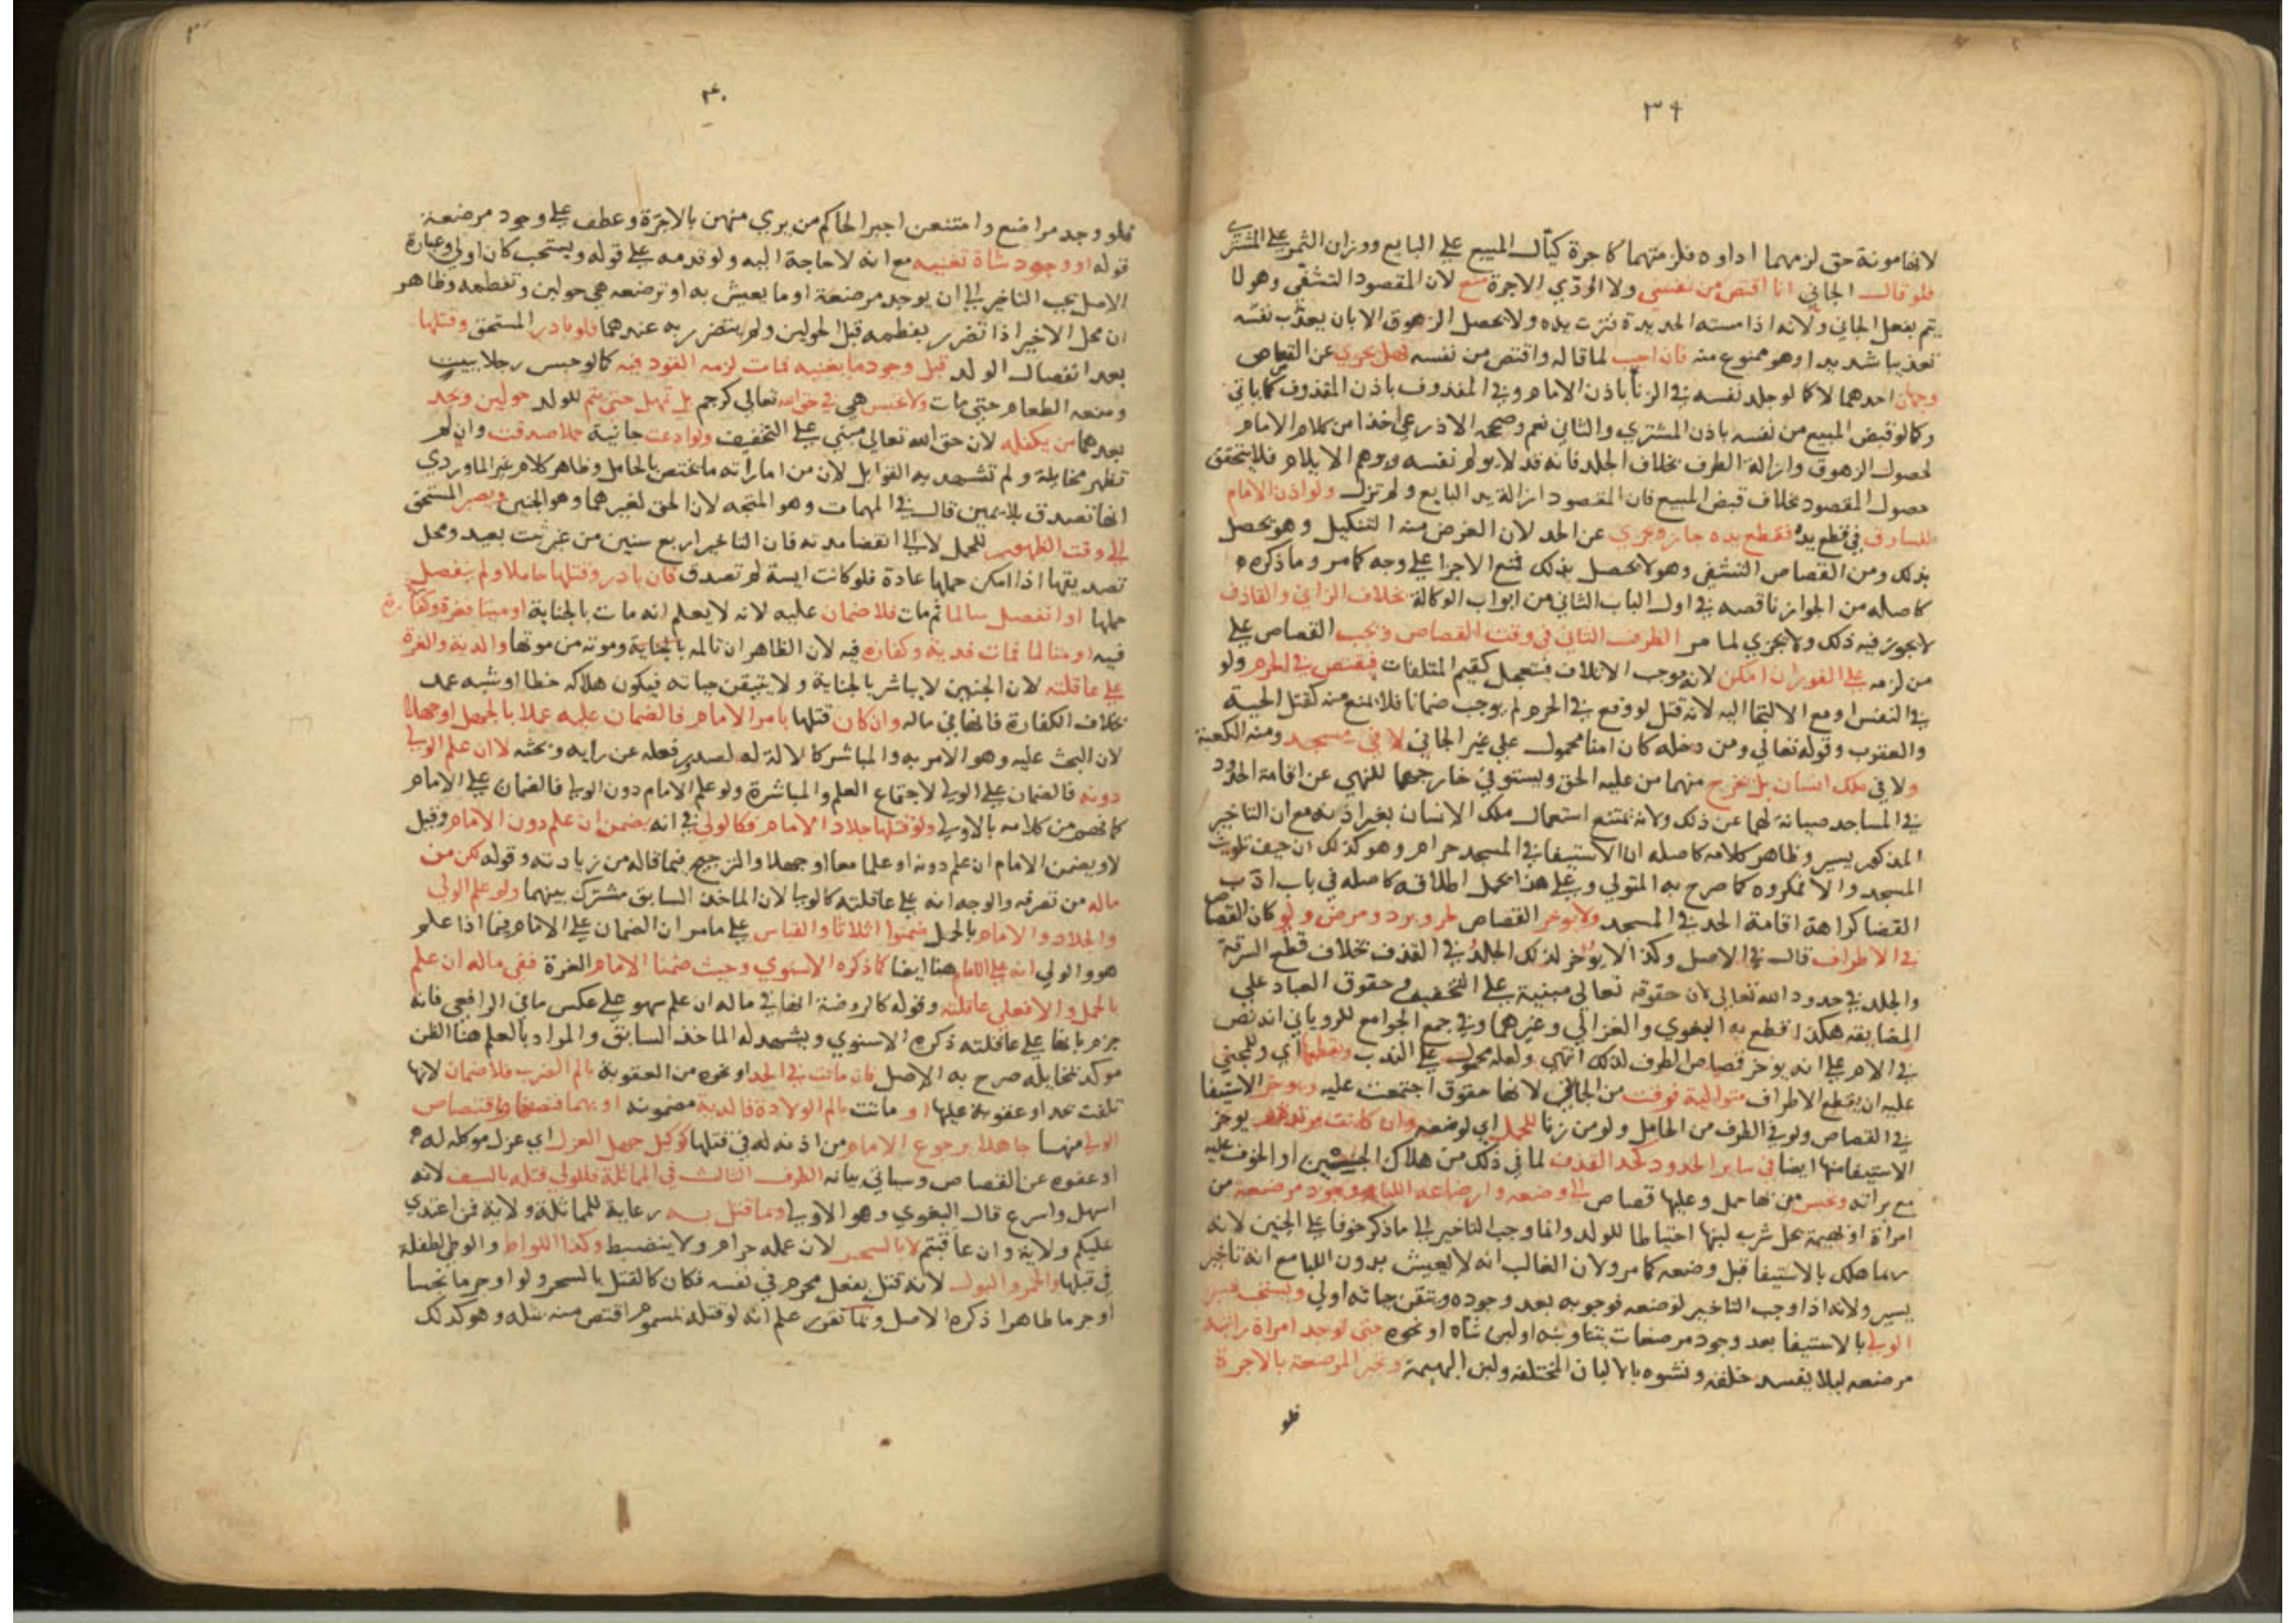 ٣٩
لانها مونة حق لزمهما اداوه فلزمتهما كاجرة كيال المبيع على البايع ووزان الثمن على المشتري
فلو قال الجاني انا اقتص من نفسي ولا اؤدي الاجرة منع لان المقصود التشفي وهو لا
يتم بفعل الجاني ولانه اذا مسته الحديدة فترت يده ولا يحصل الزهوق الا بان يعذب نفسه
تعذيبا شديدا وهو ممنوع منه فان اجيب لما قاله واقتص من نفسه فهل يجزي عن القصاص
وجهان احدهما لا كما لو جلد نفسه في الزنا باذن الامام وفي القذف باذن المقذوف كما ياتي
وكما لو قبض المبيع من نفسه باذن المشتري والثاني نعم وصححه الاذرعي اخذا من كلام الامام
لحصول الزهوق وازالة الطرف بخلاف الجلد فانه قد لا يولم نفسه ويوهم الايلام فلا يتحقق
حصول المقصود بخلاف قبض المبيع فان المقصود ازالة يد البايع ولم تزل ولو اذن الامام
للسارق في قطع يده فقطع يده جاز ويجزي عن الحد لان الغرض منه التنكيل وهو يحصل
بذلك ومن القصاص التشفي وهو لا يحصل بذلك فمنع الاجزا على وجه كما مر وما ذكره
كاصله من الجواز ناقصه في اول الباب الثاني من ابواب الوكالة بخلاف الزاني والقاذف
لا يجوز فيه ذلك ولا يجزي لما مر الطرف الثاني في وقت القصاص ويجب القصاص على
من لزمه على الفور ان امكن لانه موجب الاتلاف فيتعجل كقيم المتلفات فيقتص في الحرم ولو
في النفس او مع الالتجا اليه لانه قتل لو وقع في الحرم لم يوجب ضمانا فلا يمنع منه كقتل الحية
والعقرب وقوله تعالى ومن دخله كان امنا محمول على غير الجاني لا في مسجد ومنه الكعبة
ولا في ملك انسان بل يخرج منهما من عليه الحق ويستوفي خارجهما للنهي عن اقامة الحدود
في المساجد صيانة لهما عن ذلك ولانه يمتنع استعمال ملك الانسان بغير اذنه مع ان التاخير
المذكور يسير وظاهر كلامه كاصله ان الاستيفا في المسجد حرام وهو كذلك ان خيف تلويث
المسجد والا فمكروه كما صرح به المتولي وعلى هذا يحمل اطلاقه كاصله في باب ادب
القضا كراهة اقامة الحد في المسجد ولا يوخر القصاص لحر وبرد ومرض ولو كان القصاص
في الاطراف قال في الاصل وكذا لا يوخر لذلك الجلد في القذف بخلاف قطع السرقة
والجلد في حدود الله تعالى لان حقوقه تعالى مبنية على التخفيف وحقوق العباد على
المضايقة هكذا قطع به البغوي والغزالي وغيرهما وفي جمع الجوامع للروياني انه نص
في الام على انه يوخر قصاص الطرف لذلك انتهى ولعله محمول على الندب ويقطع اي وللمجني
عليه ان يقطع الاطراف متوالية فوقت من الجاني لانها حقوق اجتمعت عليه ويوخر الاستيفا
في القصاص ولو في الطرف من الحامل ولو من زنا للحمل اي لوضعه وان كانت مرتدة يوخر
الاستيفا منها ايضا في ساير الحدود كحد القذف لما في ذلك من هلاك الجنين او الخوف عليه
مع براته وتحبس من بها حمل وعليها قصاص الى وضعه وارضاعه اللبا ووجود مرضعة من
امراة او بهيمة يحل شرب لبنها احتياطا للولد وانما وجب التاخير الى ما ذكر خوفا على الجنين لانه
ربما هلك بالاستيفا قبل وضعه كما مر ولان الغالب انه لا يعيش بدون اللبا مع انه تاخير
يسير ولانه اذا وجب التاخير لوضعه فوجوبه بعد وجوده وتيقن حياته اولى ويستحب صبر
الولي بالاستيفا بعد وجود مرضعات يتناوبنه او لبن شاه او نحوه حتى توجد امراة راتبة
مرضعه ليلا يفسد خلقه ونشوه بالالبان المختلفه ولبن البهيمة وتجبر المرضعة بالاجرة
فلو
٤٠
فلو وجد مراضع وامتنعن اجبر الحاكم من يرى منهن بالاجرة وعطف على وجود مرضعة
قوله او وجود شاة تغنيه مع انه لا حاجة اليه ولو قدمه على قوله ويستحب كان اولى وعبارة
الاصل يجب التاخير الى ان يوجد مرضعة او ما يعيش به او ترضعه هي حولين وتفطمه وظاهر
ان محل الاخير اذا تضرر بفطمه قبل الحولين ولم يتضرر به عندهما فلو بادر المستحق وقتلها
بعد انفصال الولد قبل وجود ما يغنيه فمات لزمه القود فيه كما لو حبس رجلا ببيت
ومنعه الطعام حتى مات ولا تحبس هي في حق الله تعالى كرجم بل تمهل حتى يتم للولد حولين ويجد
بعدهما من يكفله لان حق الله تعالى مبني على التخفيف ولو ادعت جانية حملا صدقت وان لم
تظهر مخايله ولم تشهد به القوابل لان من اماراته ما يختص بالحامل وظاهر كلام غير الماوردي
انها تصدق بلا يمين قال في المهمات وهو المتجه لان الحق لغيرهما وهو الجنين ويصبر المستحق
الى وقت الظهور للحمل لا الى انقضا مدته فان التاخير اربع سنين من غير ثبت بعيد ومحل
تصديقها اذا امكن حملها عادة فلو كانت ايسة لم تصدق فان بادر وقتلها حاملا ولم ينفصل
حملها او انفصل سالما ثم مات فلا ضمان عليه لانه لا يعلم انه مات بالجناية او ميتا فغرة وكفارة
فيه او متالما فمات فدية وكفارة فيه لان الظاهر ان تالمه بالجناية وموته من موتها والدية والغرة
على عاقلته لان الجنين لا يباشر بالجناية ولا يتيقن حياته فيكون هلاكه خطا او شبه عمد
بخلاف الكفارة فانها في ماله وان كان قتلها بامر الامام فالضمان عليه عملا بالحمل او جهلا
لان البحث عليه وهو الامر به والمباشر كالالة له لصدور فعله عن رايه وبحثه لا ان علم الولي
دونه فالضمان على الولي لاجتماع العلم والمباشرة ولو علم الامام دون الولي فالضمان على الامام
كما فهم من كلامه بالاولى ولو قتلها جلاد الامام فكالولي في انه يضمن ان علم دون الامام وقيل
لا ويضمن الامام ان علم دونه او علما معا او جهلا والترجيح فيما قاله من زيادته وقوله لكن من
ماله من تصرفه والوجه انه على عاقلته كالولي لان الماخذ السابق مشترك بينهما ولو علم الولي
والجلاد والامام بالحمل ضمنوا اثلاثا والقياس على ما مر ان الضمان على الامام فيما اذا علم
هو والولي انه على الامام هنا ايضا كما ذكره الاسنوي وحيث ضمنا الامام الغرة ففي ماله ان علم
بالحمل والا فعلى عاقلته وقوله كالروضة انها في ماله ان علم سهو على عكس ما في الرافعي فانه
جزم بانها على عاقلته ذكره الاسنوي ويشهد له الماخذ السابق والمراد بالعلم هنا الظن
موكد بمخايله صرح به الاصل فان ماتت في الحد او نحوه من العقوبة بالم الضرب فلا ضمان لانها
تلفت بحد او عقوبة عليها او ماتت بالم الولادة فالدية مضمونة او بهما فنصفها واقتصاص
الولي منها جاهلا برجوع الامام من اذنه له في قتلها كوكيل جهل العزل اي عزل موكله له
او عفوه عن القصاص وسياتي بيانه الطرف الثالث في المماثلة فللولي قتله بالسيف لانه
اسهل واسرع قال البغوي وهو الاولى وبما قتل به رعاية للمماثلة ولاية فمن اعتدي
عليكم ولاية وان عاقبتم لا بالسحر لان عمله حرام ولا ينضبط وكذا اللواط والوطي لطفلة
في قبلها والخمر والبول لانه قتل بفعل محرم في نفسه فكان كالقتل بالسحر ولو اوجر ما نجسا
اوجر ما طاهرا ذكره الاصل وبما تقرر علم انه لو قتله بمسموم اقتص منه بمثله وهو كذلك